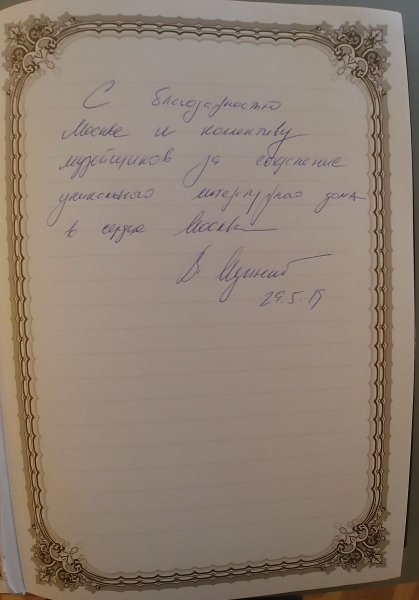 С благодарностью
Москве и колективу
музейщиков за создание
уникального литературного дома
в сердце Москвы
В.
29.5.19